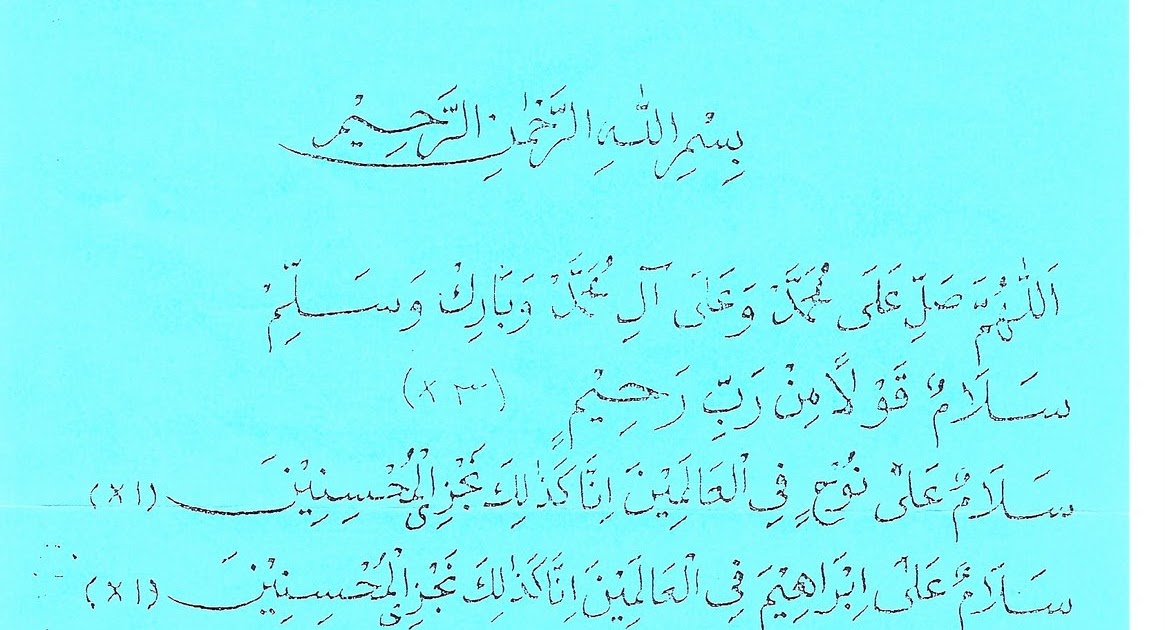 بِسْمِ اللّٰهِ الرَّحْمٰنِ الرَّحِيْمِ
اَللّٰهُمَّ صَلِّ عَلَى مُحَمَّدْ وَعَلَى آلِ مُحَمَّدْ وَبَارِكْ وَسَلِّمْ
سَلَامٌ قَوْلًا مِنْ رَبِّ رَحِيْمٍ (٣ x)
سَلَامٌ عَلٰى نُوْحٍ فِي الْعَالَمِيْنَ اِنَّا كَذٰلِكَ نَجْزِي الْمُحْسِنِيْنَ (١ x)
سَلَامٌ عَلٰى اِبْرَاهِيْمَ فِي الْعَالَمِيْنَ اِنَّا كَذٰلِكَ نَجْزِي الْمُحْسِنِيْنَ (١ x)